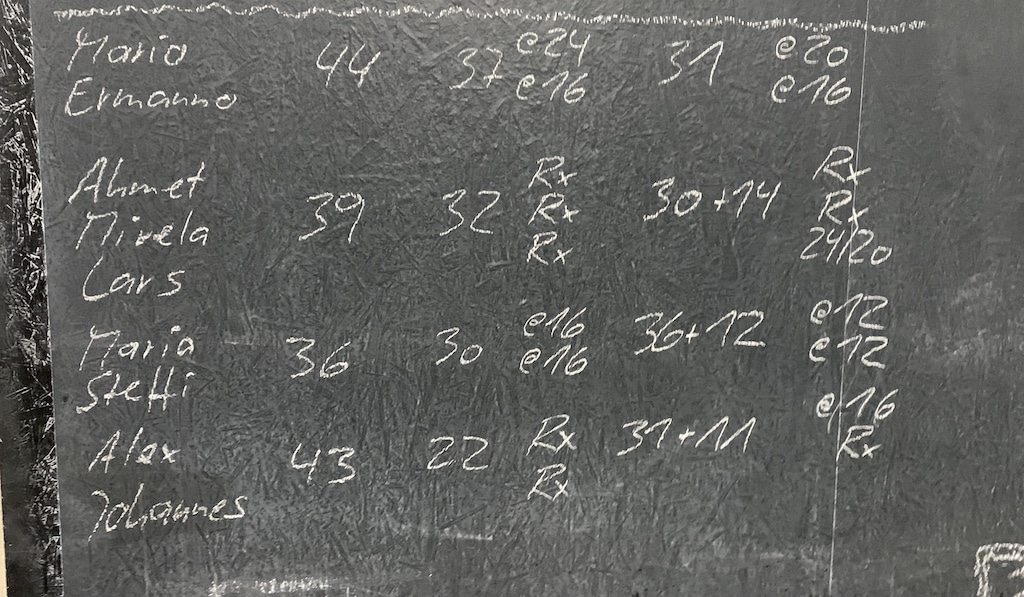 Mario 44 37 @24 31 @20
Ermanno @16 @16
Ahmet Rx Rx
Mirela 39 32 Rx 30+14 Rx
Lars Rx 24/20
Maria 36 30 @16 36+12 @12
Steffi @16 @12
@16
Alex 43 22 Rx 31+11 Rx
Rx
Johannes